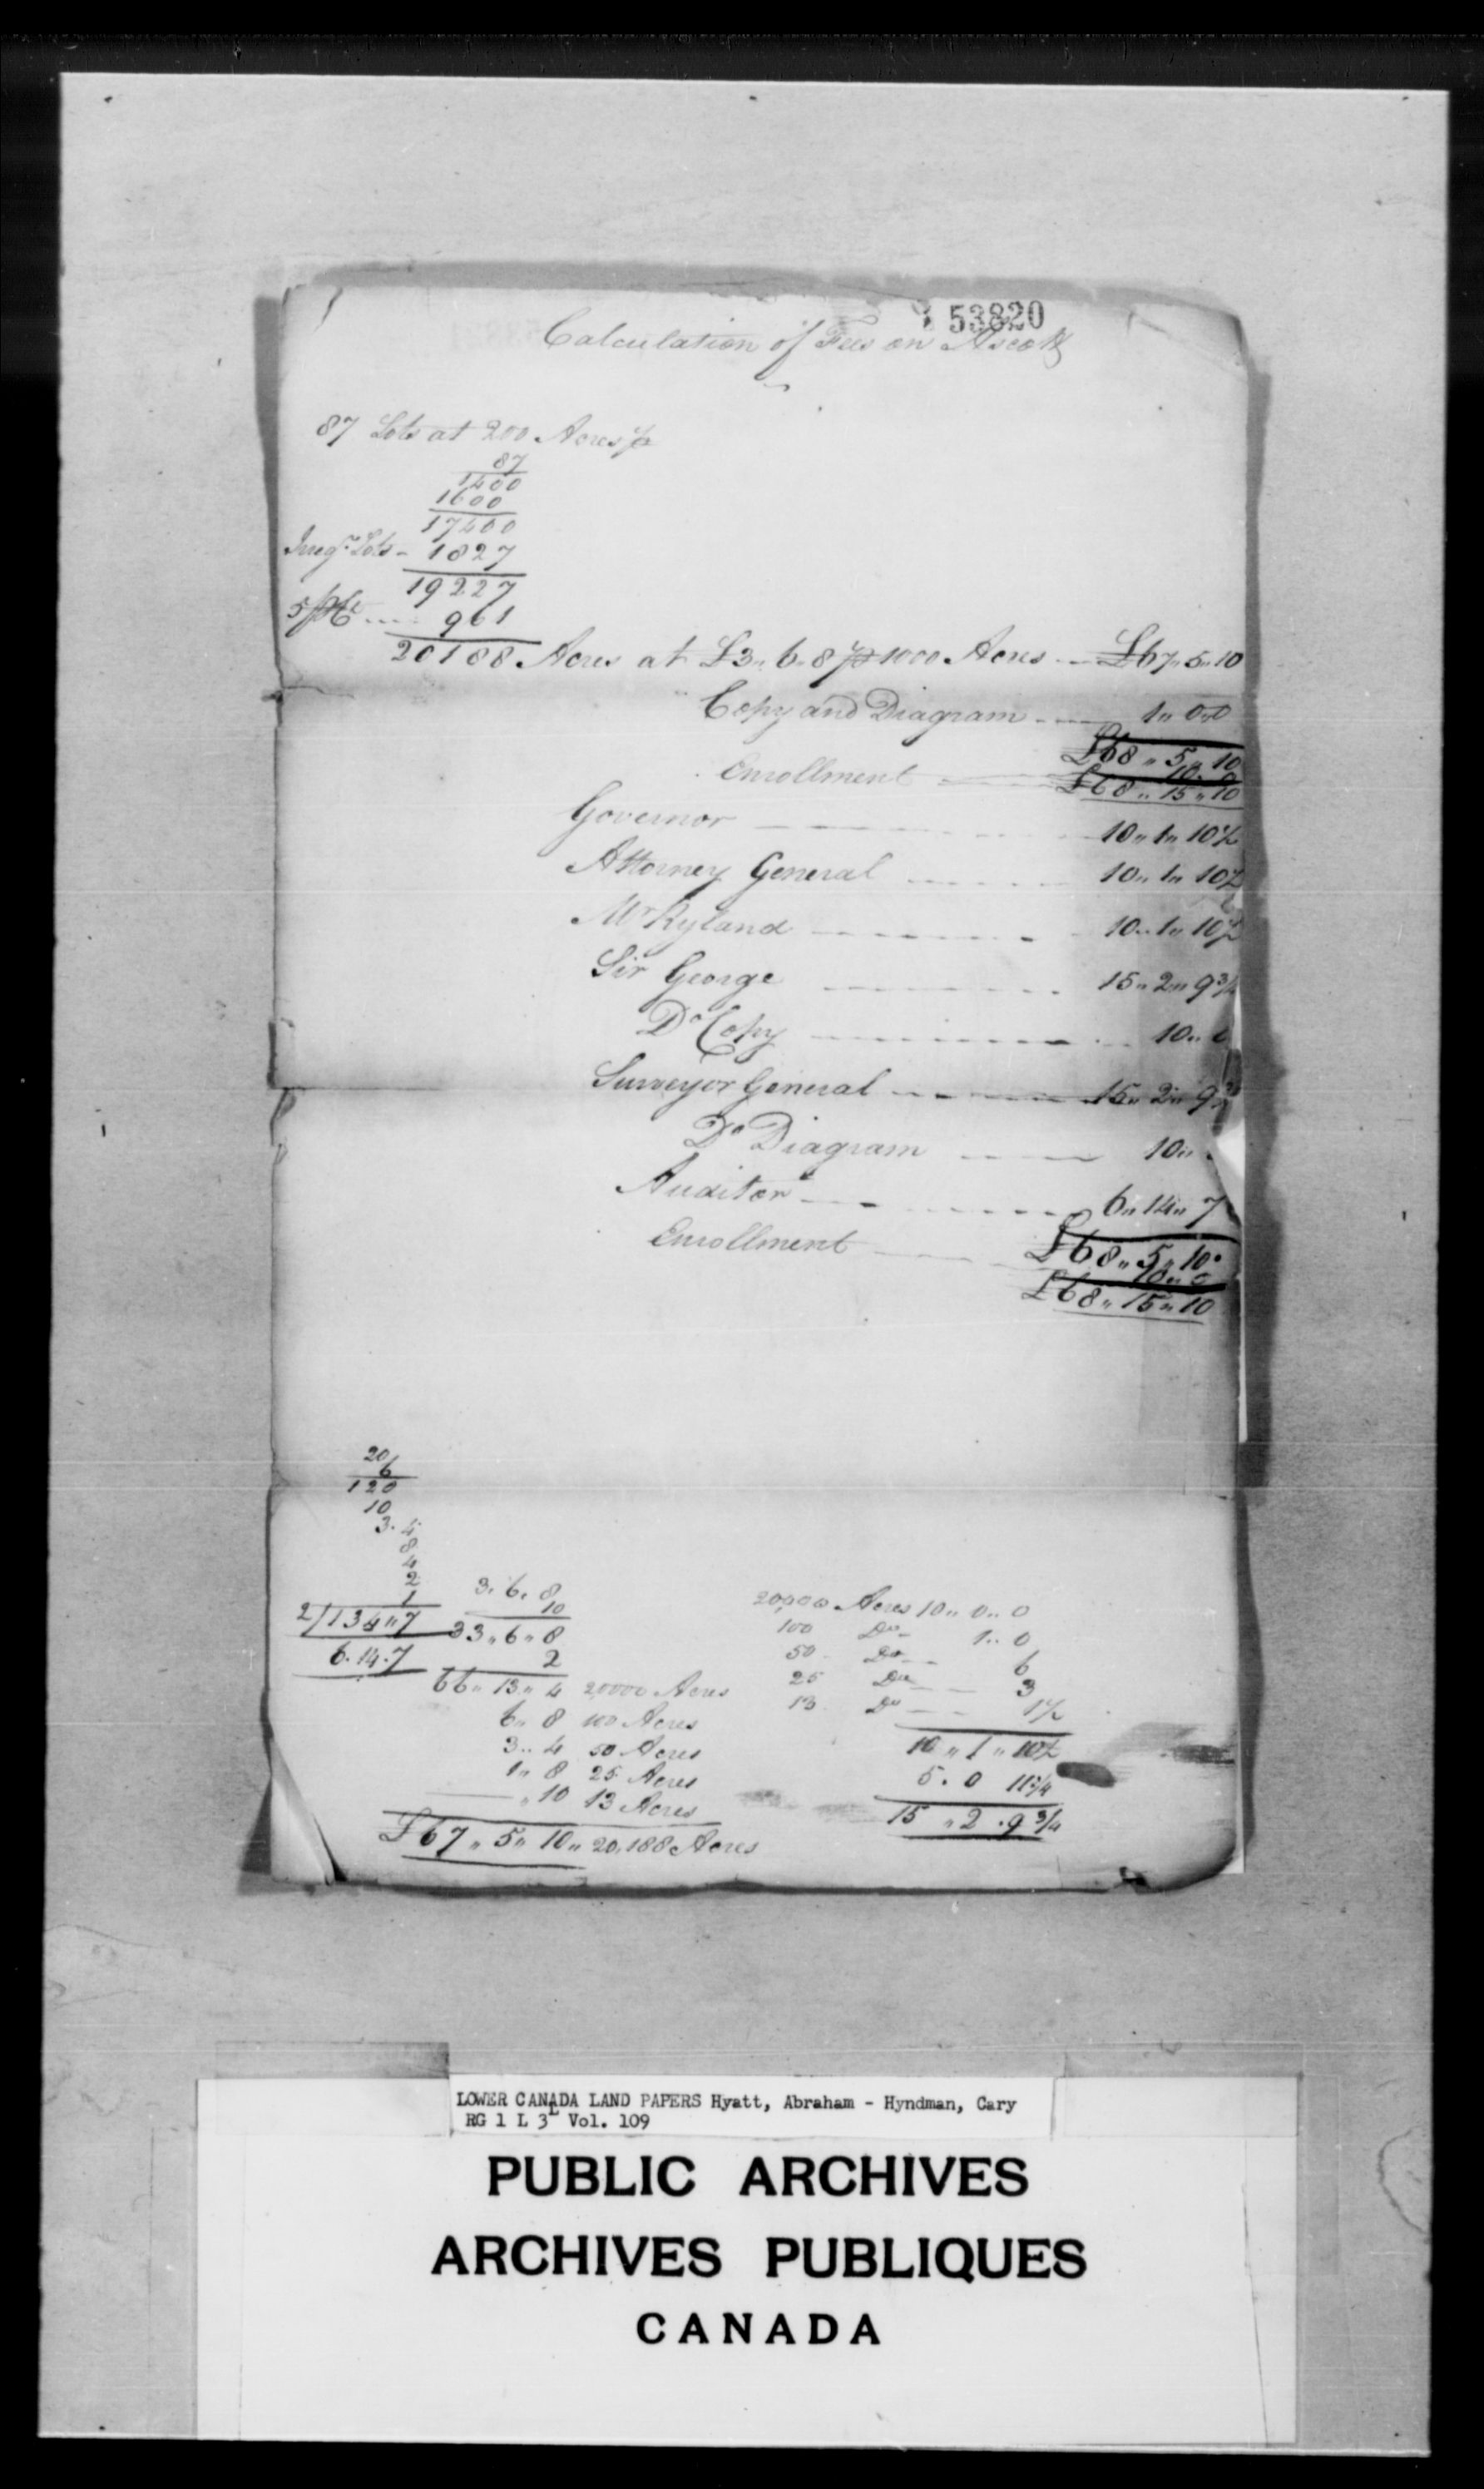 53820
Calculation of Fees on Ascott
87 Lots at 200 Acres p
87
1400
1600
17400
Irregr. Lots - 1827
19227
5 p Ct .... 961
20188 Acres at £3" 6" 8 p 1000 Acres - £67" 5" 10
Copy and Diagram - 1" 0" 0
£68 " 5 " 10
Enrollment 10 " 0
£68 " 15 " 10
Governor 10 " 1 " 10½
Attorney General 10 " 1 " 10½
Mr Ryland 10 " 1 " 10½
Sir George 15 " 2 " 9¾
Do Copy 10 "
Surveyor General 15 " 2 " 9¾
Do Diagram 10 "
Auditor 6 " 14 " 7
£68 " 5 " 10
Enrollment 10 " 0
£68 " 15 " 10
20/
6
120
10
3. 4
8
4
2
1
2/134 " 7
6. 14. 7
3. 6. 8
10
33 " 6 " 8
2
66 " 13 " 4 20000 Acres
6 " 8 100 Acres
3 " 4 50 Acres
1 " 8 25 Acres
" 10 13 Acres
£67 " 5 " 10 " 20,188 Acres
20,000 Acres 10 " 0 " 0
100 Do 1 " 0
50 Do 6
25 Do 3
13 Do 1½
10 " 1 " 10½
5 . 0 11¼
15 " 2 . 9¾
LOWER CANADA LAND PAPERS Hyatt, Abraham - Hyndman, Cary
RG 1 L 3L Vol. 109
PUBLIC ARCHIVES
ARCHIVES PUBLIQUES
CANADA